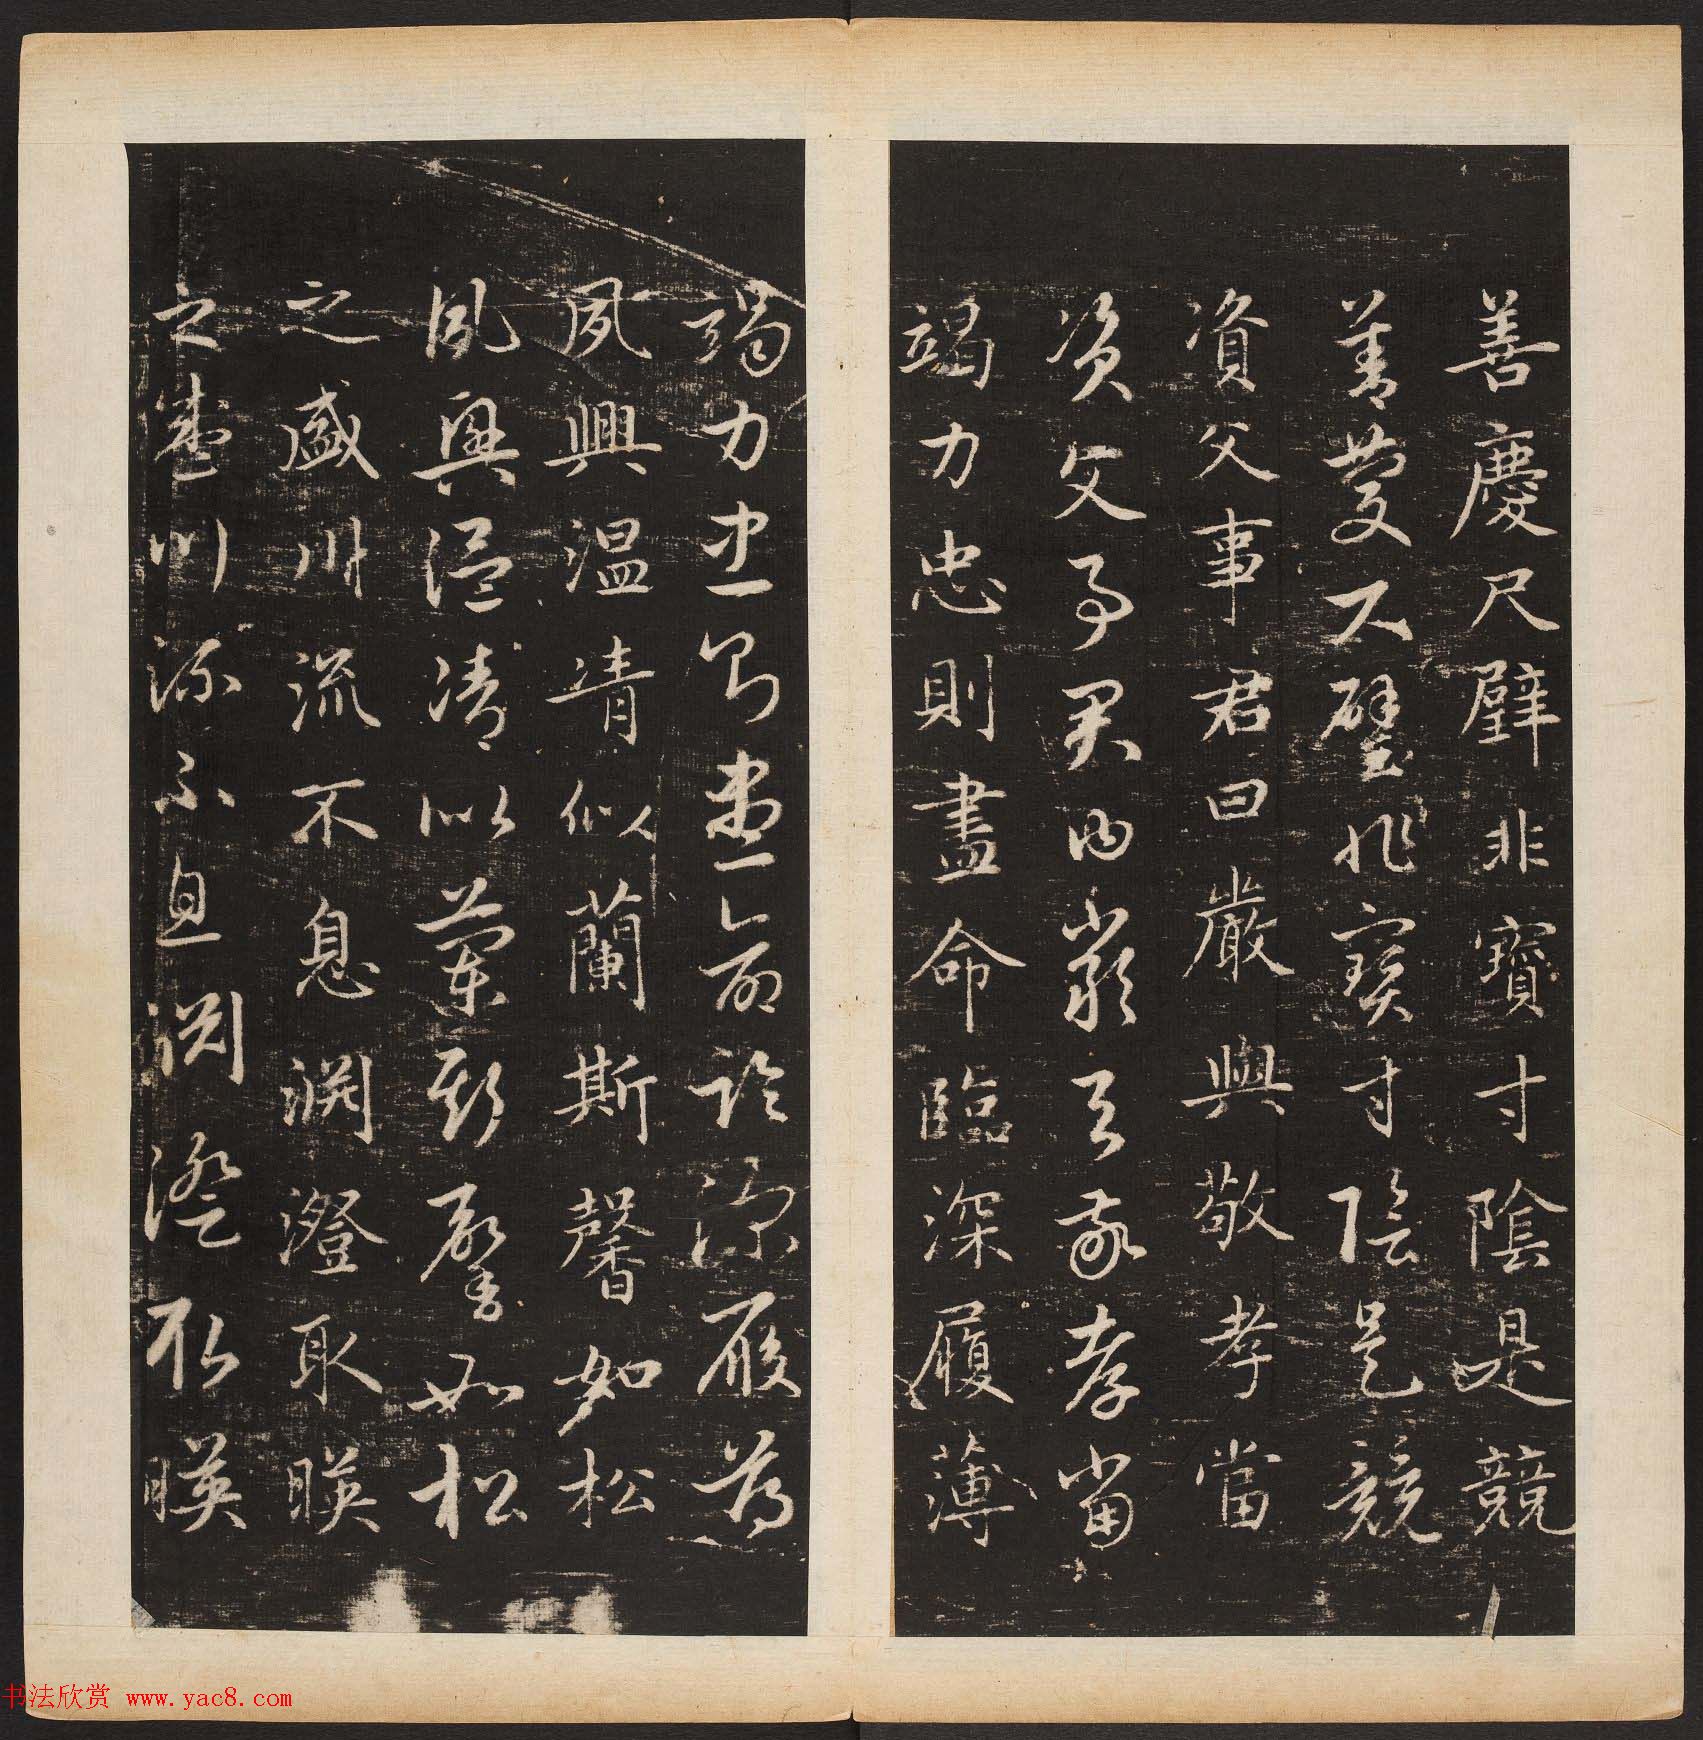 善慶尺璧非寶寸陰是競
善慶尺璧非寶寸陰是競
資父事君曰嚴與敬孝當
資父事君曰嚴與敬孝當
竭力忠則盡命臨深履薄
竭力忠則盡命臨深履薄
夙興温凊似蘭斯馨如松
夙興温凊似蘭斯馨如松
之盛川流不息淵澄取暎
之盛川流不息淵澄取暎
书法欣赏 www.yac8.com